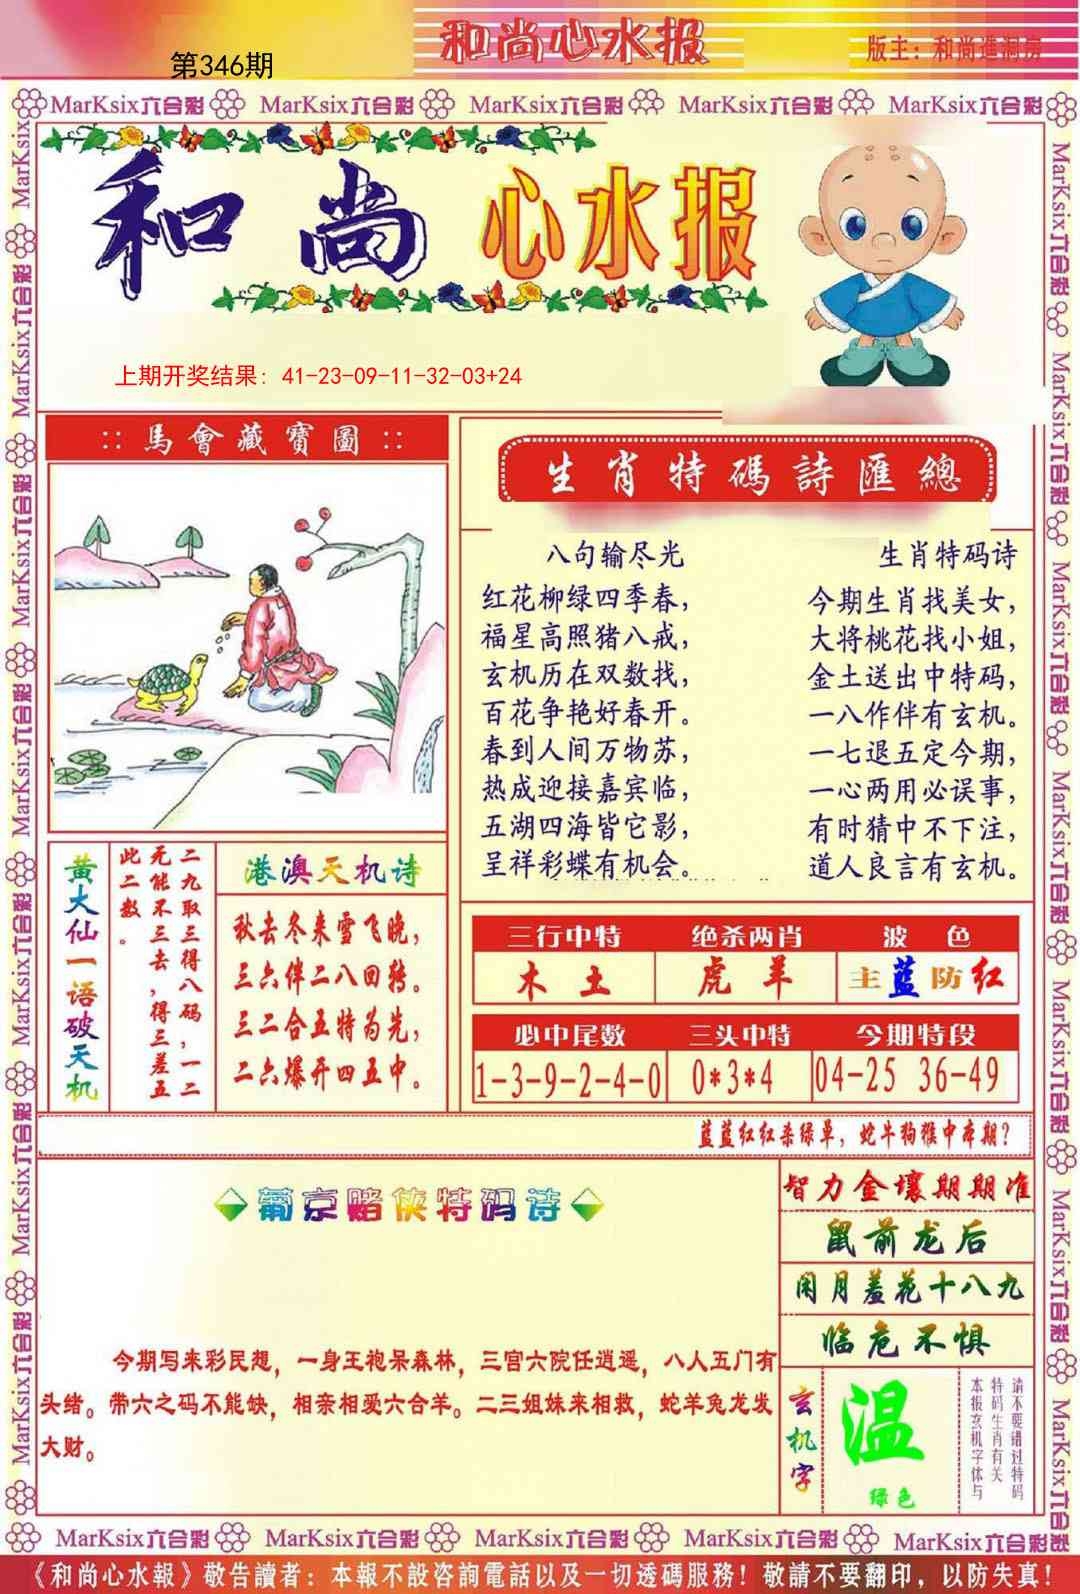 第346期
和尚心水报
版主：和尚進洞房
MarKsix六合彩 MarKsix六合彩 MarKsix六合彩 MarKsix六合彩 MarKsix六合彩
和尚心水报
上期开奖结果: 41-23-09-11-32-03+24
::馬會藏寶圖::
生肖特碼詩匯總
八句输尽光
红花柳绿四季春，
福星高照猪八戒，
玄机历在双数找，
百花争艳好春开。
春到人间万物苏，
热成迎接嘉宾临，
五湖四海皆它影，
呈祥彩蝶有机会。
生肖特码诗
今期生肖找美女，
大将桃花找小姐，
金土送出中特码，
一八作伴有玄机。
一七退五定今期，
一心两用必误事，
有时猜中不下注，
道人良言有玄机。
黄大仙一语破天机
二九取三得八码，一二
无能不三去，得三差五
此二数。
港澳天机诗
秋去冬来雪飞晚，
三六伴二八回转。
三二合五特为先，
二六爆开四五中。
三行中特 绝杀两肖 波色
木土 虎羊 主蓝防红
必中尾数 三头中特 今期特段
1-3-9-2-4-0 0*3*4 04-25 36-49
蓝蓝红红杀绿单，蛇牛狗猴中本期？
葡京赌侠特码诗
今期写来彩民想，一身王袍呆森林，三宫六院任逍遥，八人五门有
头绪。带六之码不能缺，相亲相爱六合羊。二三姐妹来相救，蛇羊兔龙发
大财。
智力金壤期期准
鼠前龙后
闭月羞花十八九
临危不惧
玄机字
温
绿色
请不要错过特码
特码生肖有关
本报玄机字体与
MarKsix六合彩 MarKsix六合彩 MarKsix六合彩 MarKsix六合彩 MarKsix六合彩
《和尚心水報》敬告讀者：本報不設咨詢電話以及一切透碼服務！敬請不要翻印，以防失真！